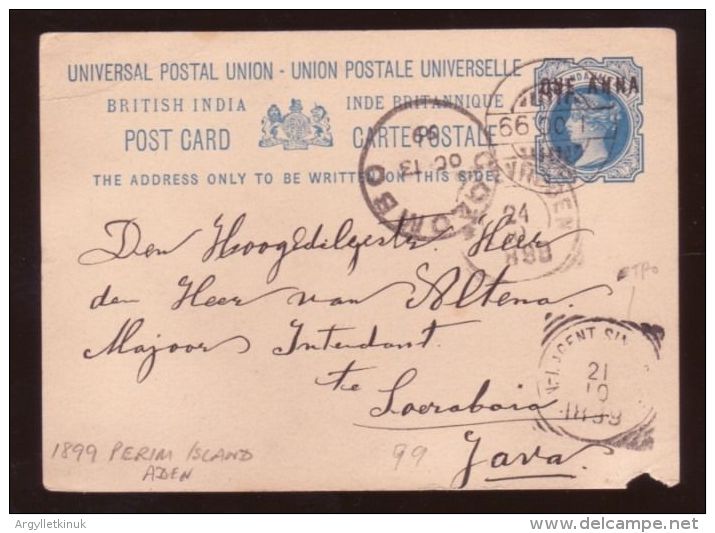 UNIVERSAL POSTAL UNION - UNION POSTALE UNIVERSELLE
BRITISH INDIA INDE BRITANNIQUE
POST CARD CARTE POSTALE
THE ADDRESS ONLY TO BE WRITTEN ON THIS SIDE
ONE ANNA
99 OC 1
ADEN
COLOMBO
OC 13
99
24
10
1899
Den Hoogedilgestr. Heer
den Heer van Altena.
Majoor Intendant.
te
Soerabaia
Java.
N-I. AGENT SIN
21
10
1899
1899 PERIM ISLAND
ADEN
99
Argylletkinuk
delcampe.net